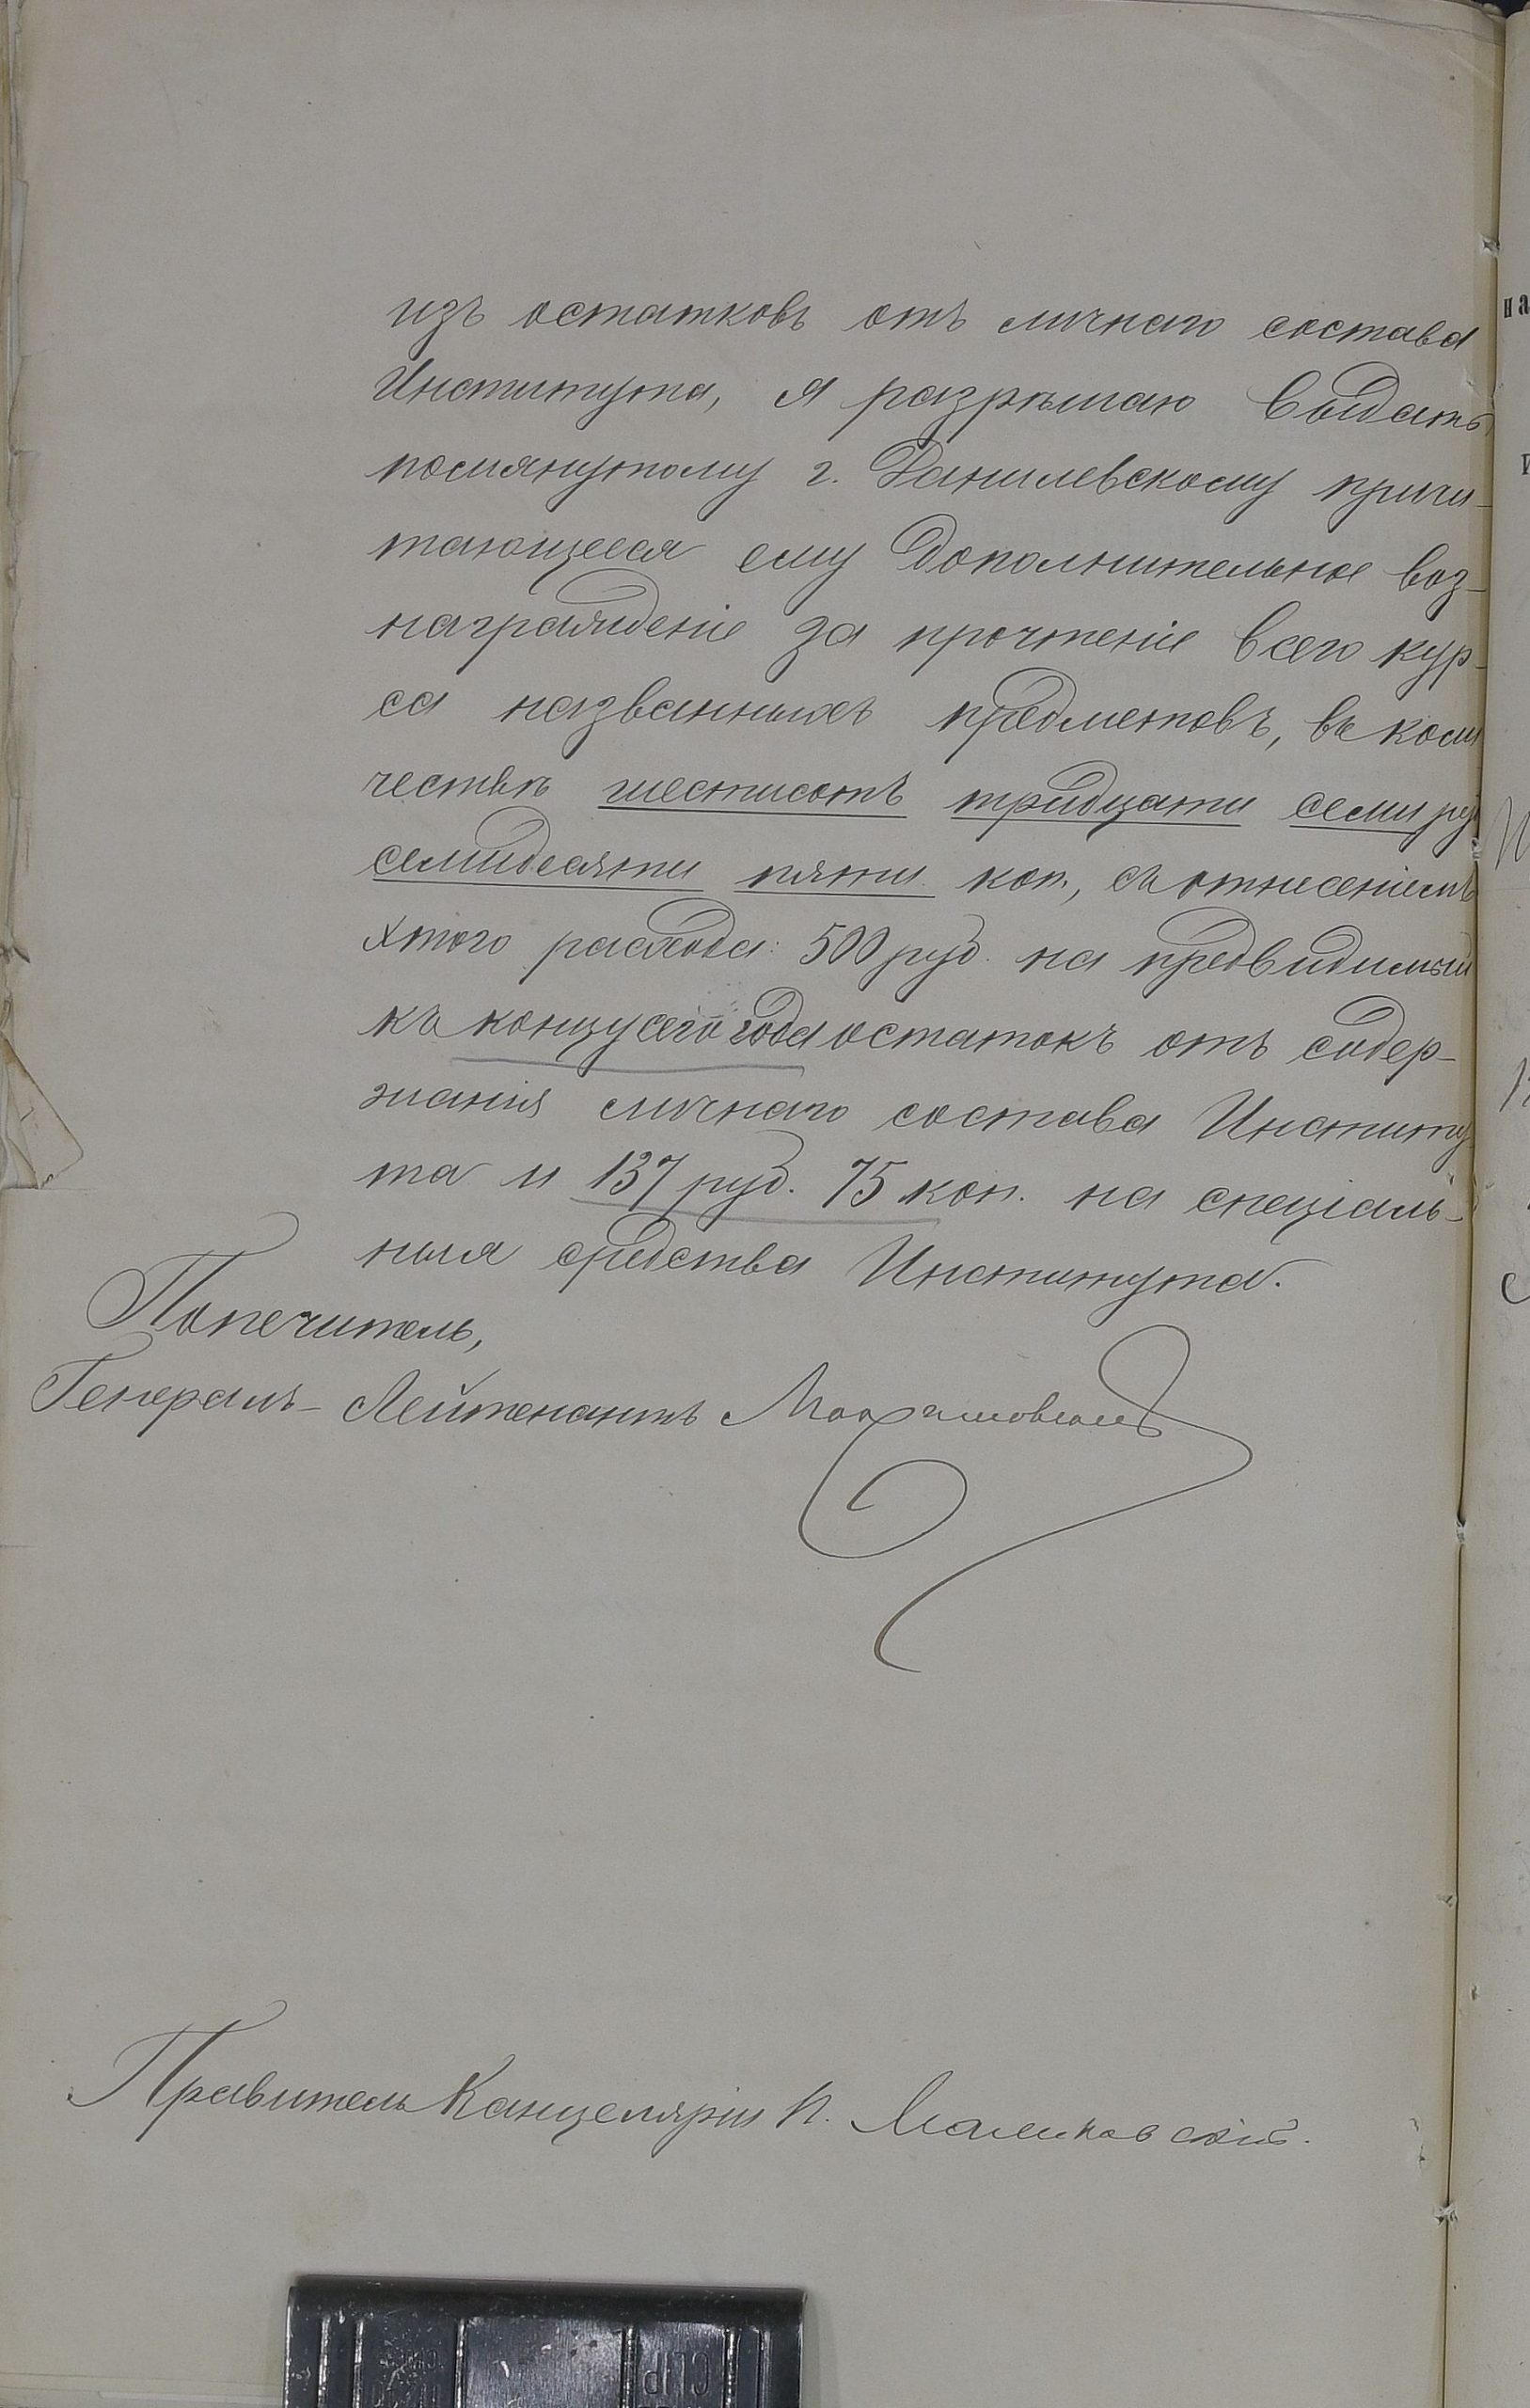 изъ остатковъ отъ личнаго состава
Института, я разрѣшаю выдать
помянутому г. Данилевскому причи-
тающееся ему дополнительное воз-
награжденіе за прочтеніе всего кур-
са названныхъ предметовъ, въ коли
чествѣ шестисотъ тридцати семи ру
семидесяти пяти коп., съ отнесеніемъ
этого расхода: 500 руб. на предвидимый
къ концу сего года остатокъ отъ содер-
жанія личнаго состава Институ
та и 137 руб. 75 коп. на спеціаль-
ныя средства Института.
Попечитель,
Генералъ-Лейтенантъ
Правитель Канцеляріи П.